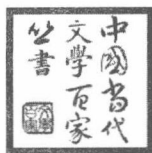 中國当代
文學百家
丛書